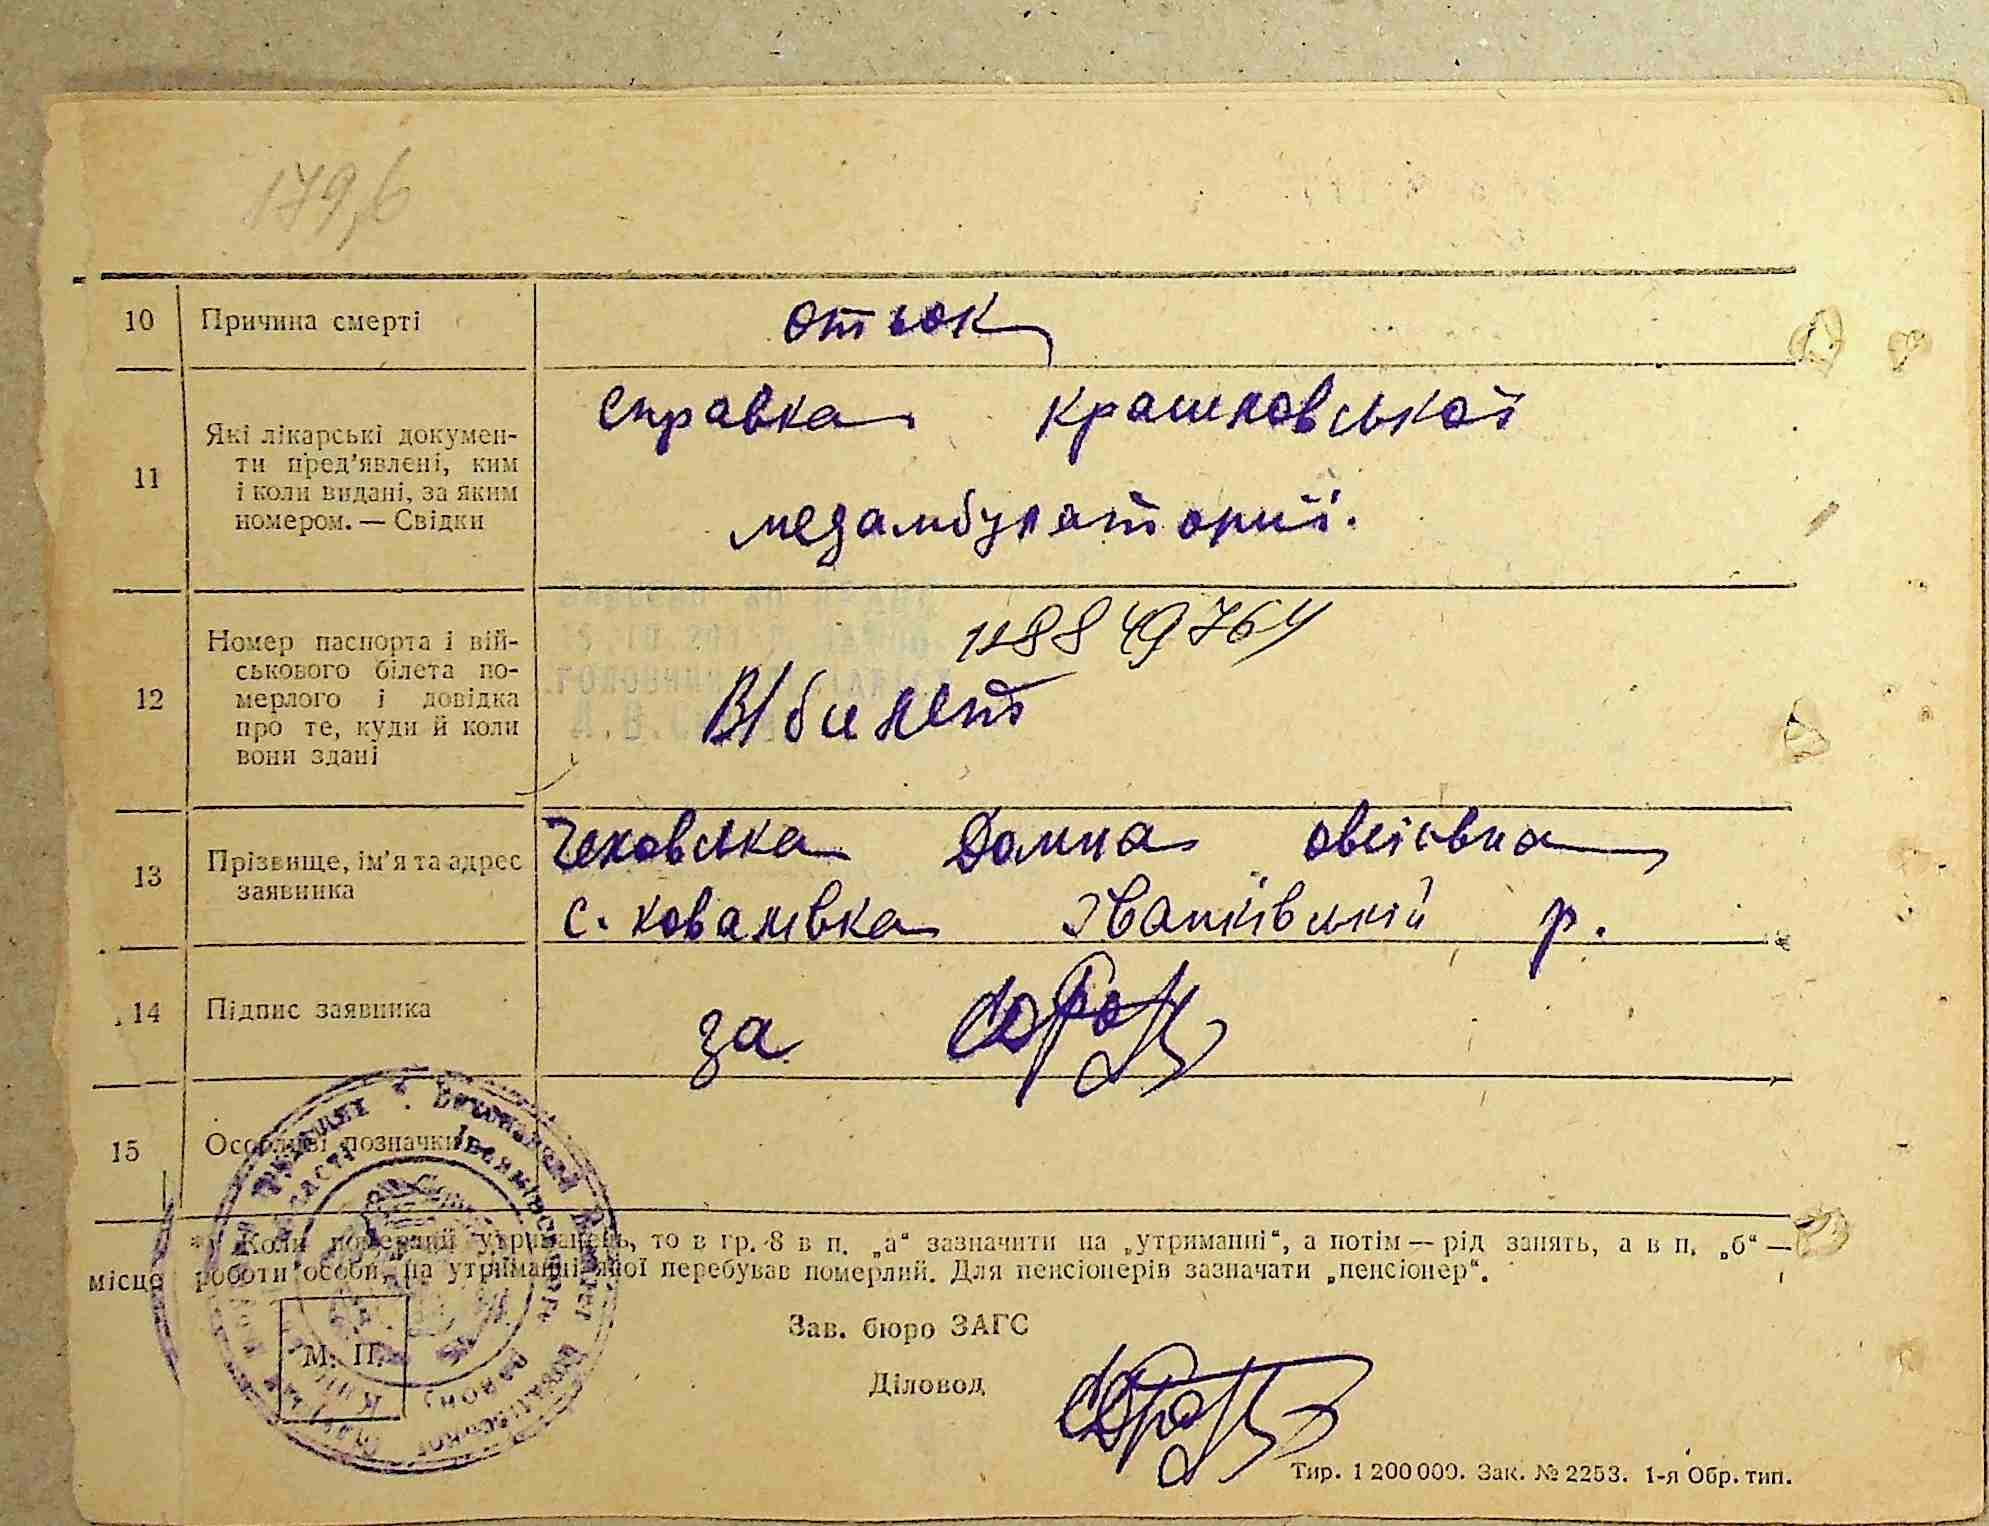 179,6
10 Причина смерті отьок
11 Які лікарські докумен-
ти пред'явлені, ким
і коли видані, за яким
номером. — Свідки
справка Крашковської
медамбулаторії.
12 Номер паспорта і вій-
ськового білета по-
мерлого і довідка
про те, куди й коли
вони здані
8849764
В/билет
13 Прізвище, ім'я та адрес
заявника
Чеховська Домна овсіовна
с. Ковалівка Іванківській р.
14 Підпис заявника за
15 Особливі позначки
*) Коли померлий утриманець, то в гр. 8 в п. „а“ зазначити на „утриманні“, а потім — рід занять, а в п. „б“ —
місце роботи особи, на утриманні якої перебував померлий. Для пенсіонерів зазначати „пенсіонер“.
Зав. бюро ЗАГС
М. П.
Діловод
Тир. 1 200 000. Зак. № 2253. 1-я Обр. тип.